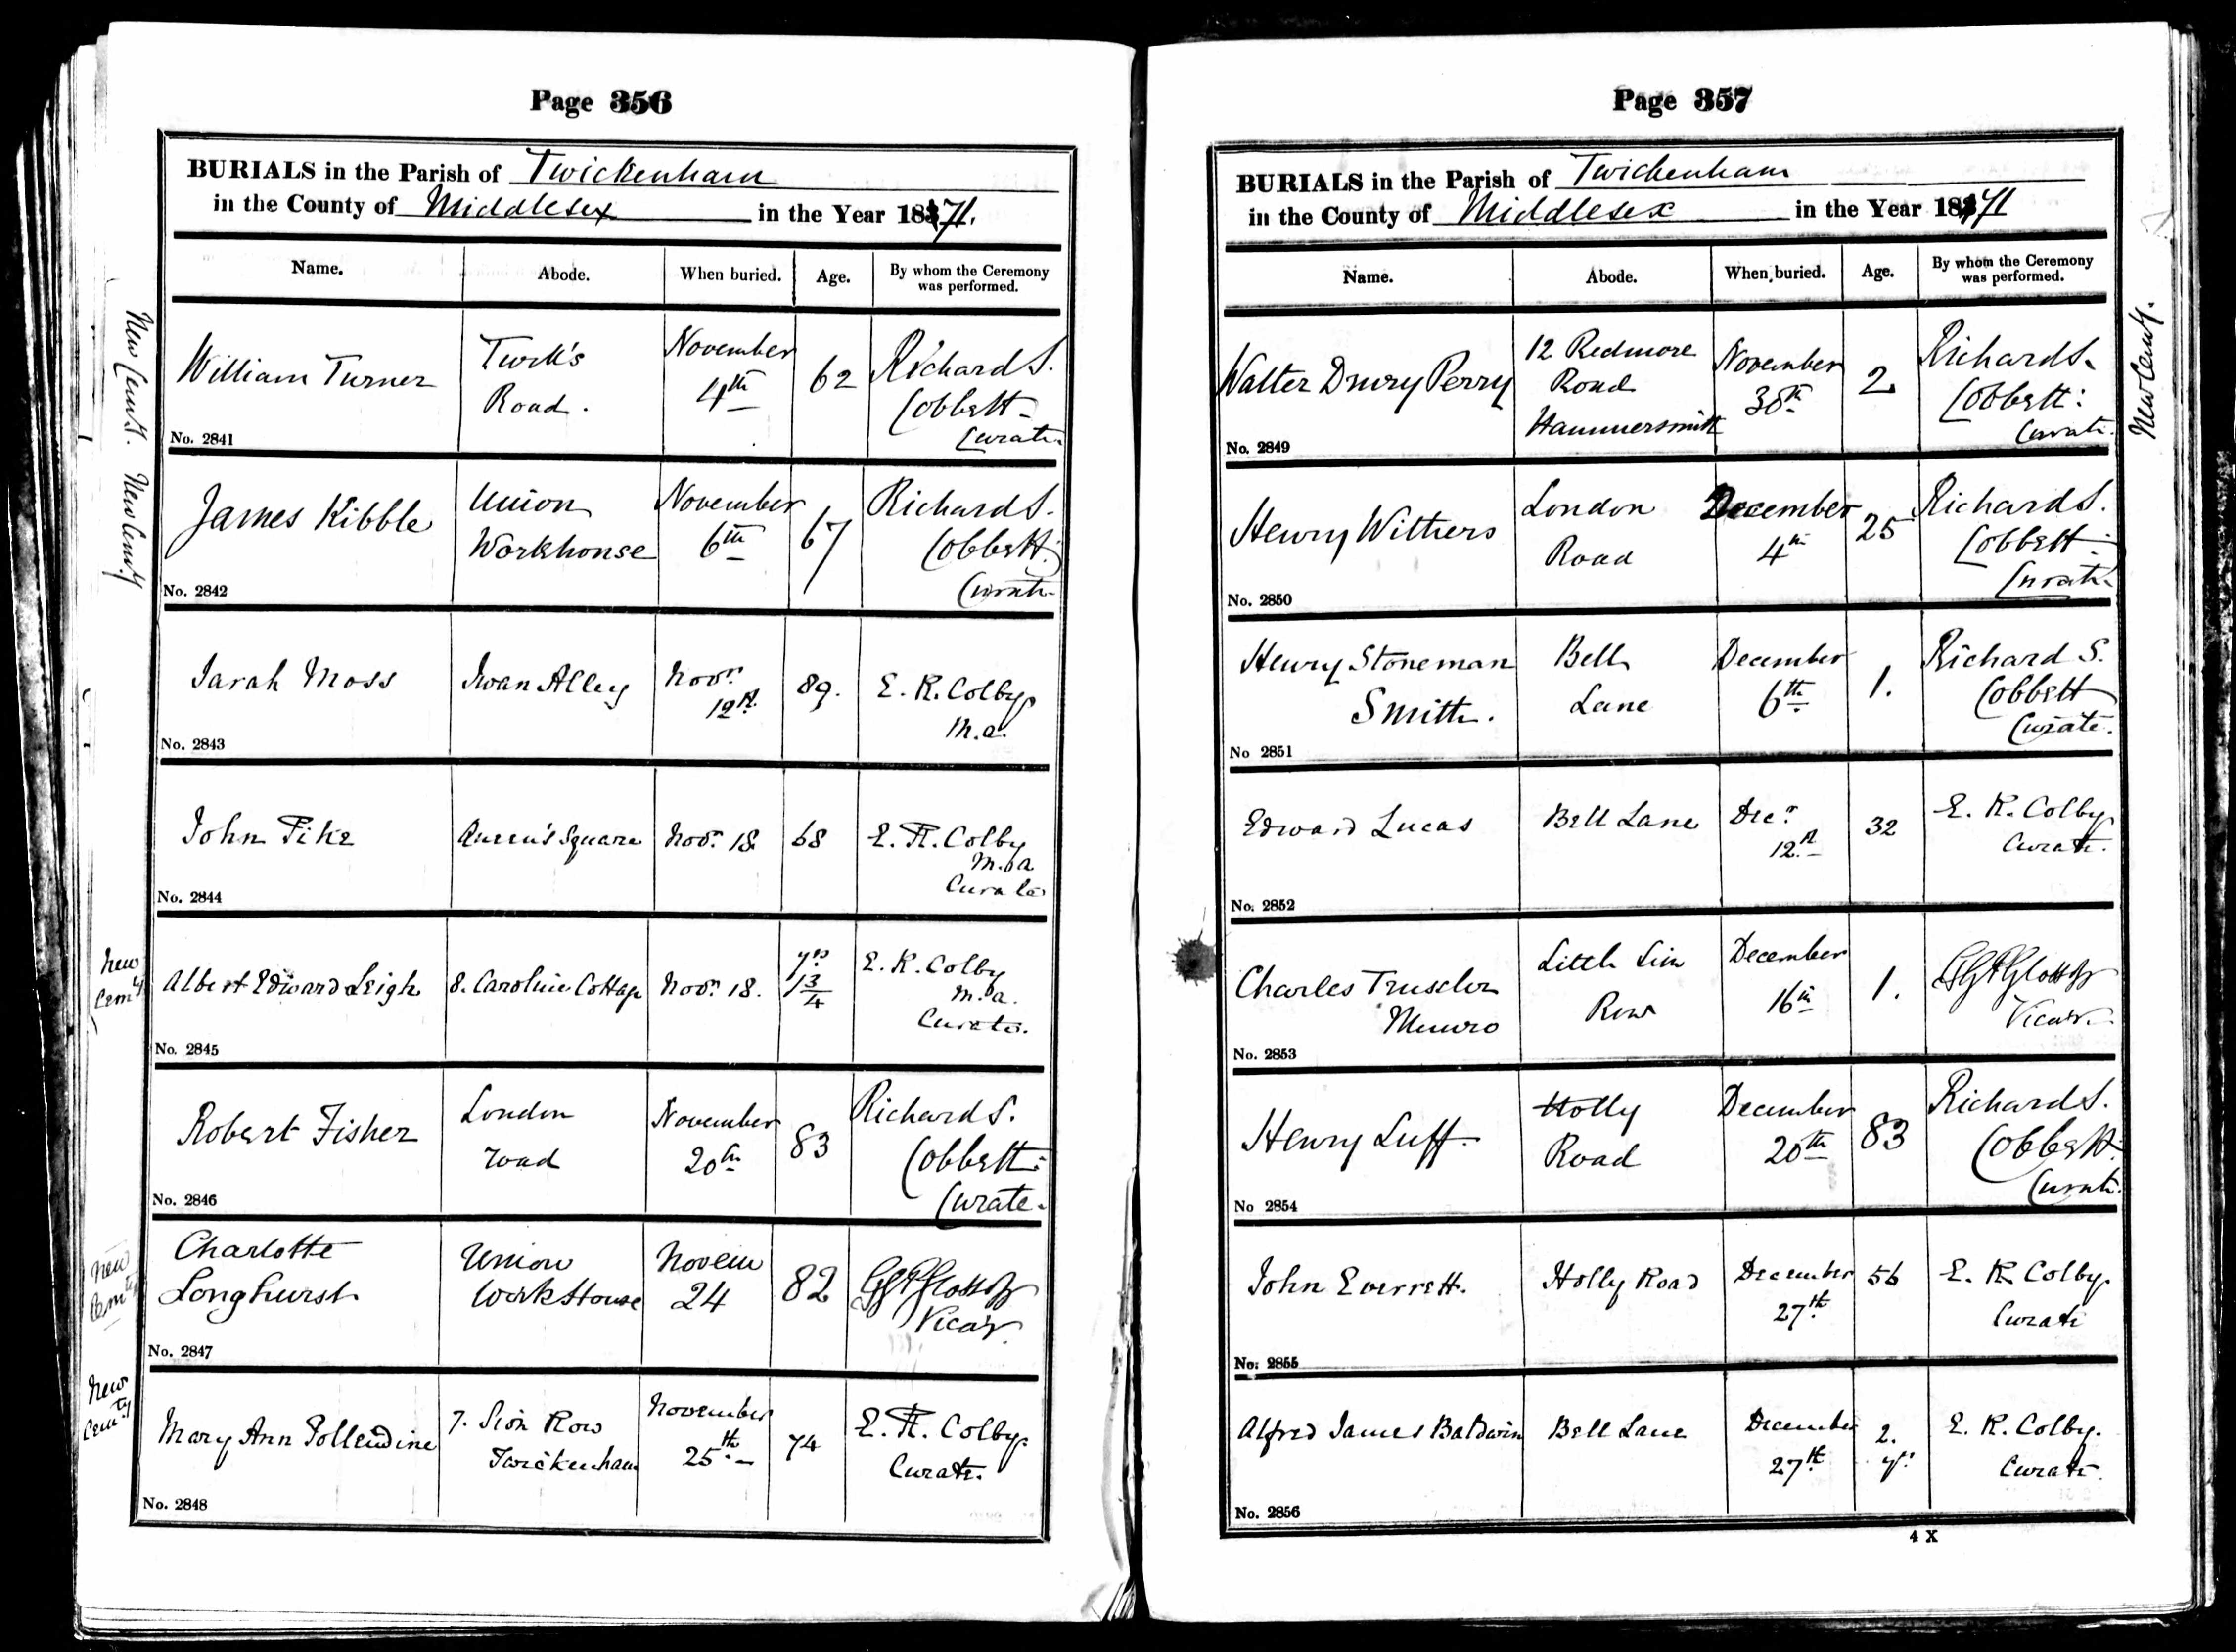 Page 356
BURIALS in the Parish of Twickenham
in the County of Middlesex in the Year 1871.
Name. Abode. When buried. Age. By whom the Ceremony was performed.
New Cemty. New Cemty
William Turner
No. 2841
Twck's
Road.
November
4th
62
Richard S.
Cobbett
Curate
James Kibble
No. 2842
Union
Workhouse
November
6th
67
Richard S.
Cobbett
Curate
Sarah Moss
No. 2843
Swan Alley
Novr.
12th
89.
E. K. Colby
M.a.
John Pike
No. 2844
Queen's Square
Novr. 18
68
E. K. Colby
M.a
Curate
New
Cemty
Albert Edward Leigh
No. 2845
8. Caroline Cottage
Novr. 18.
yrs
1 3/4
E. K. Colby
M.a.
Curate.
Robert Fisher
No. 2846
London
road
November
20th
83
Richard S.
Cobbett
Curate.
New
Cemty
Charlotte
Longhurst
No. 2847
Union
WorkHouse
Novem
24
82
Vicar
New
Cemty
Mary Ann Pollendine
No. 2848
7. Sion Row
Twickenham
November
25th
74
E. K. Colby.
Curate.
Page 357
BURIALS in the Parish of Twickenham
in the County of Middlesex in the Year 1871
Name. Abode. When buried. Age. By whom the Ceremony was performed.
New Cemty.
Walter Drury Perry
No. 2849
12 Redmore
Road
Hammersmith
November
30th
2
Richard S.
Cobbett
Curate.
Henry Withers
No. 2850
London
Road
December
4th
25
Richard S.
Cobbett
Curate
Henry Stoneman
Smith.
No 2851
Bell
Lane
December
6th
1.
Richard S.
Cobbett
Curate.
Edward Lucas
No. 2852
Bell Lane
Decr.
12th
32
E. K. Colby
Curate.
Charles Truscler
Munro
No. 2853
Little Sion
Row
December
16th
1.
Vicar.
Henry Luff.
No 2854
Holly
Road
December
20th
83
Richard S.
Cobbett
Curate.
John Everrett.
No. 2855
Holly Road
December
27th
56
E. K. Colby.
Curate
Alfred James Baldwin
No. 2856
Bell Lane
December
27th
2.
yrs
E. K. Colby.
Curate
4 X